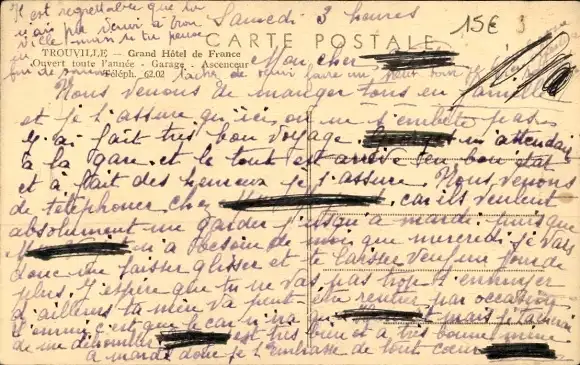 Il est regrettable que tu
n'ais pas venir à Trou
ville mais si tu peux
fin de semaine tache de venir faire un petit tour
Samedi 3 heures
15€ 3
CARTE POSTALE
TROUVILLE — Grand Hôtel de France
Ouvert toute l'année - Garage - Ascenceur
Téléph. 62.02
Mon cher
Nous venons de manger tous en famille
et je t'assure qu'ici on ne s'embête pas
J'ai fait très bon voyage. m'attendait
à la gare. et le tout est arrivé en bon état
et à fait des heureux je t'assure. Nous venons
de téléphoner chez car ils veulent
absolument me garder jusqu'à mardi. puisque
n'a besoin de moi que mercredi je vais
donc me laisser glisser et te laisser veuf un jour de
plus. J'espère que tu ne vas pas trop t'ennuyer
d'ailleurs ta mien va peut-être rentrer par occasion
l'ennui c'est que le car n'a qu' mais je tacherai
de me débrouiller est très bien et a très bonne mine
à mardi donc je t'embrasse de tout cœur